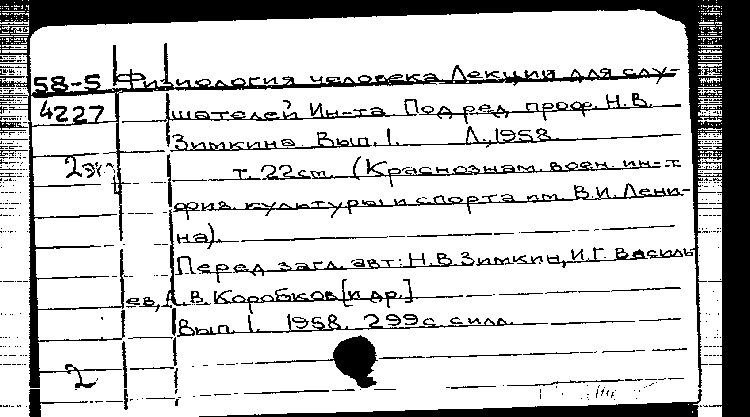 58-5 Физиология человека Лекции для слу-
4227 шателей Ин-та. Под ред. проф. Н.В.
Зимкина. Вып. 1. Л., 1958.
2эк т. 22см. (Краснознам. воен. ин-т
физ. культуры и спорта им. В.И. Лени-
на).
Перед загл. авт: Н.В. Зимкин, И.Г. Василь
ев, А.В. Коробков [и др.]
Вып. 1. 1958. 299с. силл.
2